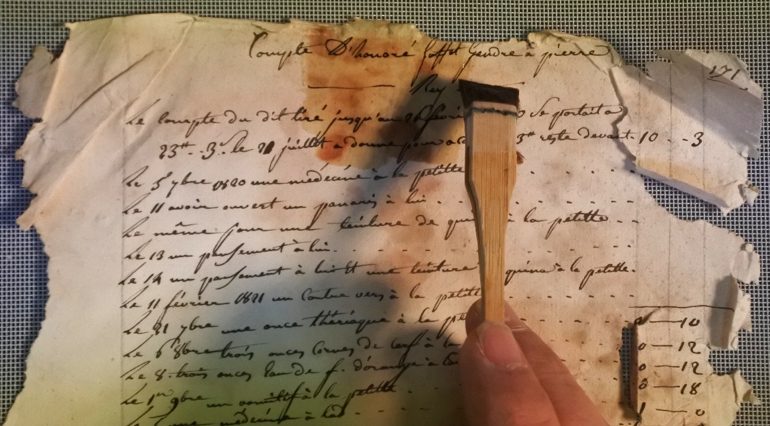 Compte D'honoré Goffet Gendre à pierre
Rey
171
Le compte du dit tiré jusqu'au 26 février se portait a
23tt - 3s. le 21 juillet a donné reste devant. 10 - - 3
Le 5 7bre 1820 une médecine à la petitte
Le 11 avoir ouvert un panaris à lui
Le même pour une teinture de quina à la petitte
Le 13 un pansement à lui
Le 14 un pansement à lui & une teinture quina à la petitte.
Le 11 février 1821 un Contre vers à la petitte
Le 21 7bre une once thériaque à la 0 - 10
Le 6 8bre trois onces Cornes de cerf à 0 - 12
Le 8. trois onces Eau de f. d'orange à 0 - 12
Le 1er 9bre un vomitif à la petitte 0 - 18
une médecine à 1 - 0